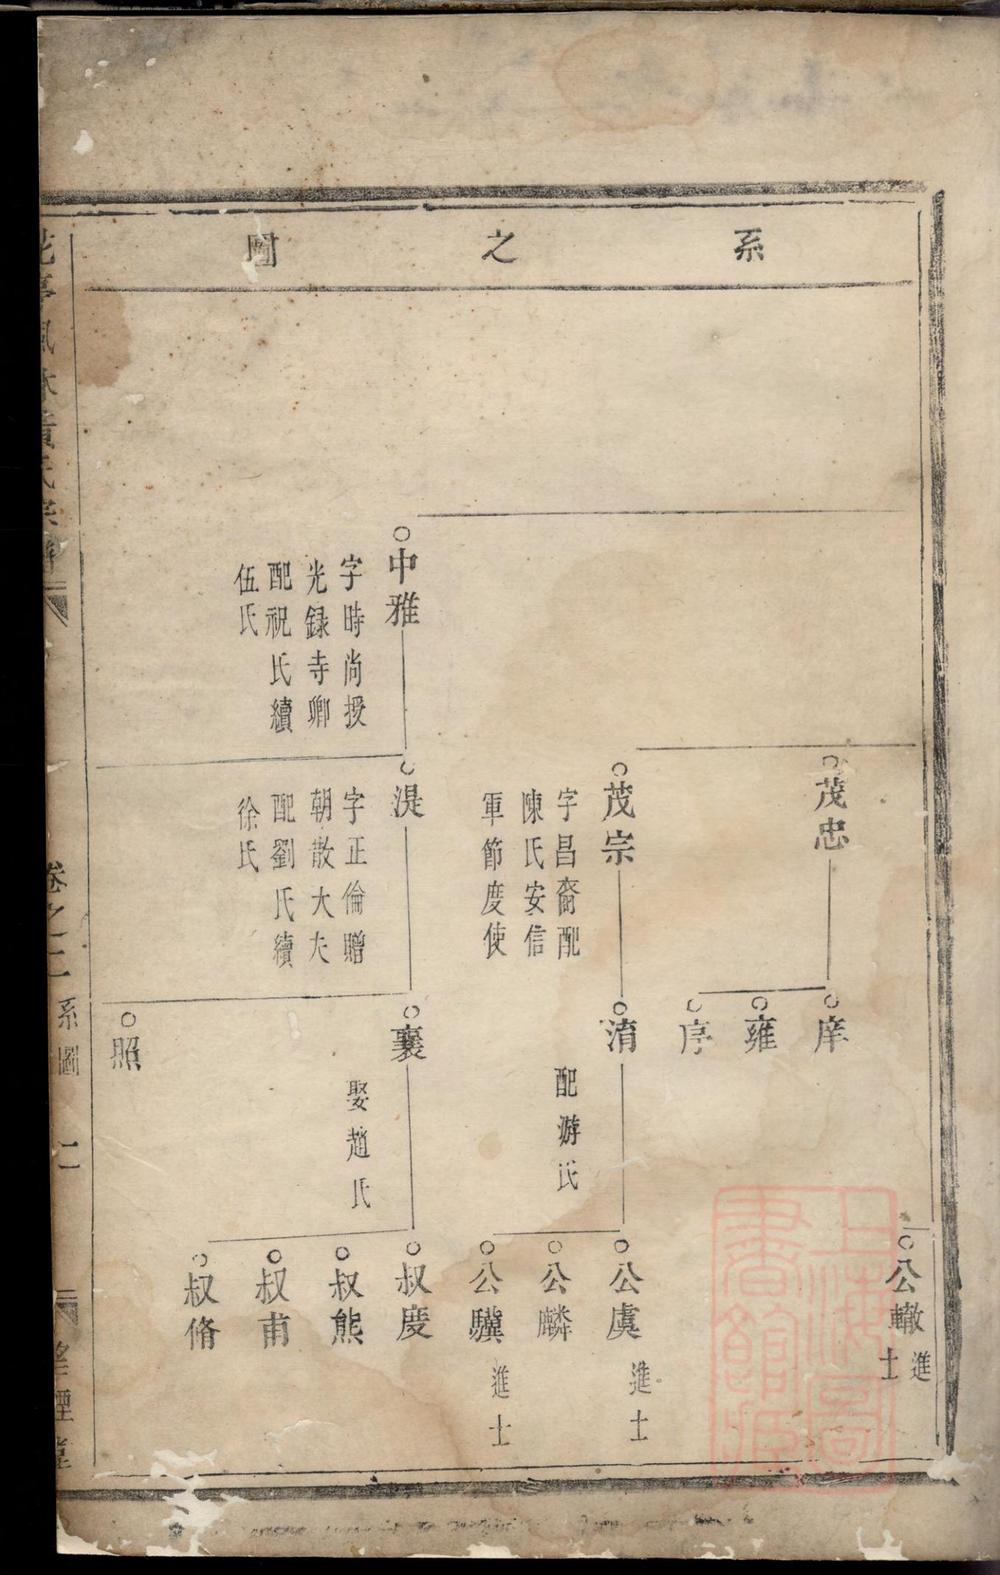 系之圖
公轍
進士
茂忠
庠
雍
序
茂宗
字昌裔配
陳氏安信
軍節度使
淯
配游氏
公虞
進士
公麟
公驥
進士
中雅
字時尚授
光録寺卿
配祝氏續
伍氏
湜
字正倫贈
朝散大夫
配劉氏續
徐氏
襄
娶趙氏
叔慶
叔熊
叔甫
叔脩
照
風林黃氏宗
卷之二 系圖 二